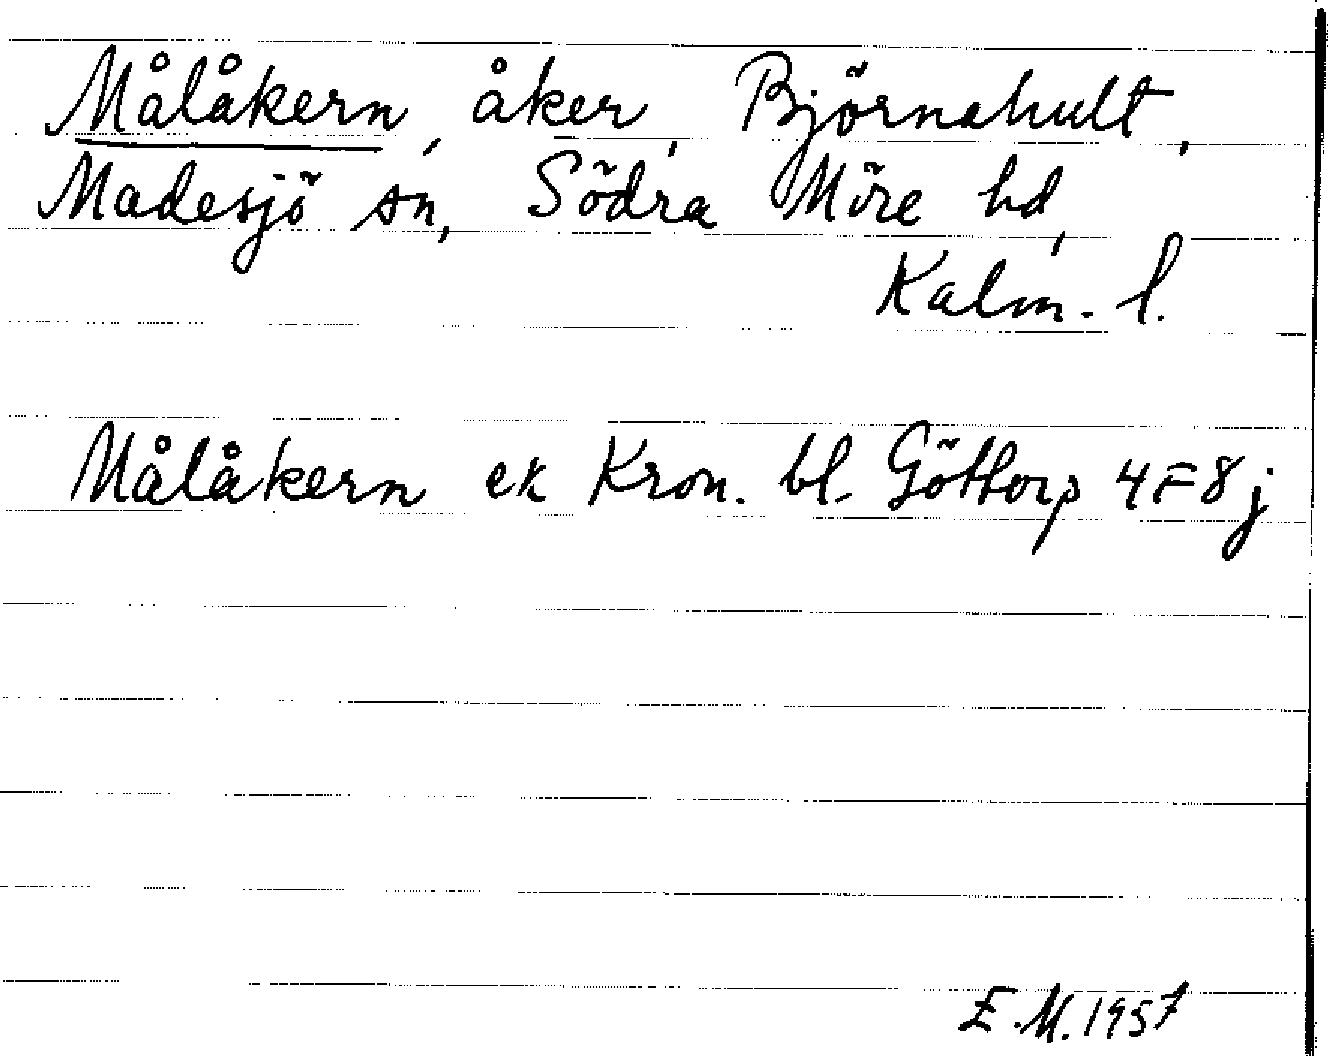 Målåkern, åker, Björnahult,
Madesjö sn, Södra Möre hd,
Kalm. l.
Målåkern ek Kron. bl. Göttorp 4F8j
E.M. 1957